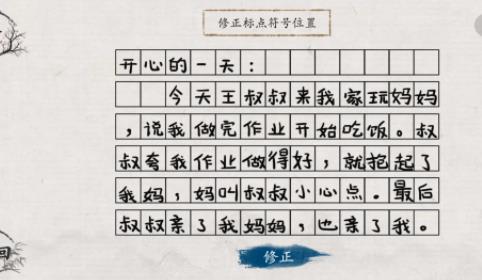 修正标点符号位置
开心的一天：
今天王叔叔来我家玩妈妈
，说我做完作业开始吃饭。叔
叔夸我作业做得好，就抱起了
我妈，妈叫叔叔小心点。最后
叔叔亲了我妈妈，也亲了我。
修正
回